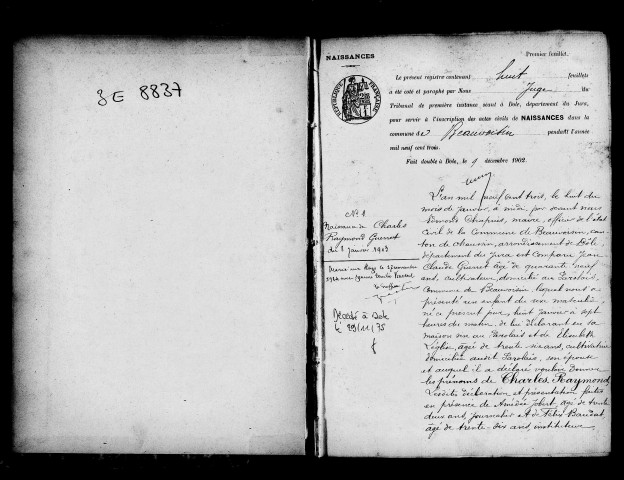 3E 8837
NAISSANCES
Premier feuillet.
Le présent registre contenant huit feuillets
a été coté et paraphé par Nous Juge Du
Tribunal de première instance séant à Dole, département du Jura,
pour servir à l'inscription des actes civils de NAISSANCES dans la
commune de Beauvoisin pendant l'année
mil neuf cent trois.
Fait double à Dole, le 9 décembre 1902.
RÉPUBLIQUE FRANÇAISE
N° 1
Naissance de Charles
Raymond Guerret
du 8 janvier 1903
Marié le 27 novembre
1926 avec
Décédé à Dole
le 29/11/75
L'an mil neuf cent trois, le huit du
mois de janvier, à midi, par devant nous
Edmond Chapuis, maire, officier de l'état
civil de la Commune de Beauvoisin, can-
ton de Chaussin, arrondissement de Dôle,
département du Jura est comparu Jean
Claude Guerret âgé de quarante neuf
ans, cultivateur, domicilié au
Commune de Beauvoisin, lequel nous a
présenté un enfant du sexe masculin,
né ce présent jour, huit janvier à sept
heures du matin, de lui déclarant en sa
maison sise au et de Elisabeth
âgée de trente ans, cultivatrice
domiciliée audit son épouse
et auquel il a déclaré vouloir donner
les prénoms de Charles, Raymond
Lesdites déclaration et présentation faites
en présence de Amédée Jobert, âgé de trente
deux ans, journalier et de Félix
âgé de trente-six ans, instituteur